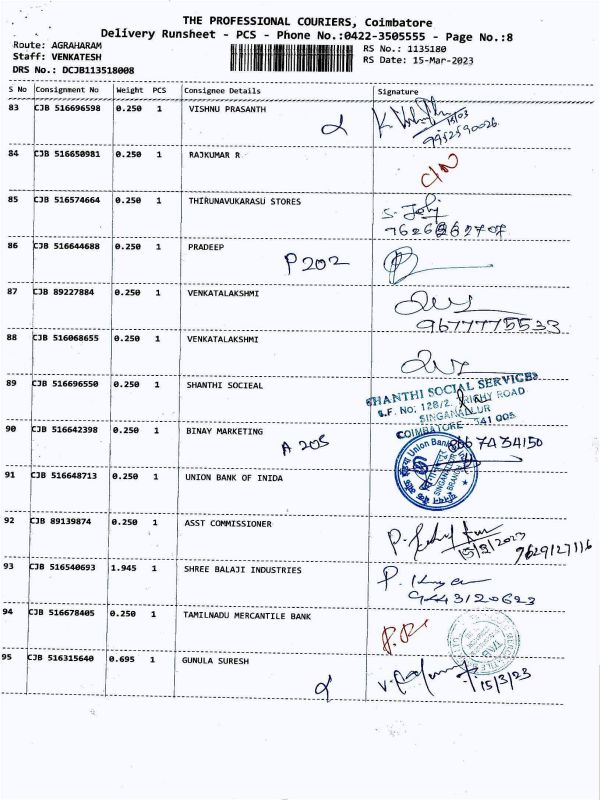 THE PROFESSIONAL COURIERS, Coimbatore
Delivery Runsheet - PCS - Phone No.:0422-3505555 - Page No.:8
Route: AGRAHARAM
Staff: VENKATESH
DRS No.: DCJB113518008
RS No.: 1135180
RS Date: 15-Mar-2023
S No Consignment No Weight PCS Consignee Details Signature
83 CJB 516696598 0.250 1 VISHNU PRASANTH
15/03
9952590026
84 CJB 516650981 0.250 1 RAJKUMAR R
85 CJB 516574664 0.250 1 THIRUNAVUKARASU STORES
86 CJB 516644688 0.250 1 PRADEEP
P 202
87 CJB 89227884 0.250 1 VENKATALAKSHMI
9677775533
88 CJB 516068655 0.250 1 VENKATALAKSHMI
89 CJB 516696550 0.250 1 SHANTHI SOCIEAL
SHANTHI SOCIAL SERVICES
S.F. NO: 128/2, TRICHY ROAD
SINGANALLUR
COIMBATORE - 641 005
90 CJB 516642398 0.250 1 BINAY MARKETING
A 205
91 CJB 516648713 0.250 1 UNION BANK OF INIDA
Union Bank
92 CJB 89139874 0.250 1 ASST COMMISSIONER
15/3/2023
9629127116
93 CJB 516540693 1.945 1 SHREE BALAJI INDUSTRIES
9443120623
94 CJB 516678405 0.250 1 TAMILNADU MERCANTILE BANK
95 CJB 516315640 0.695 1 GUNULA SURESH
15/3/23